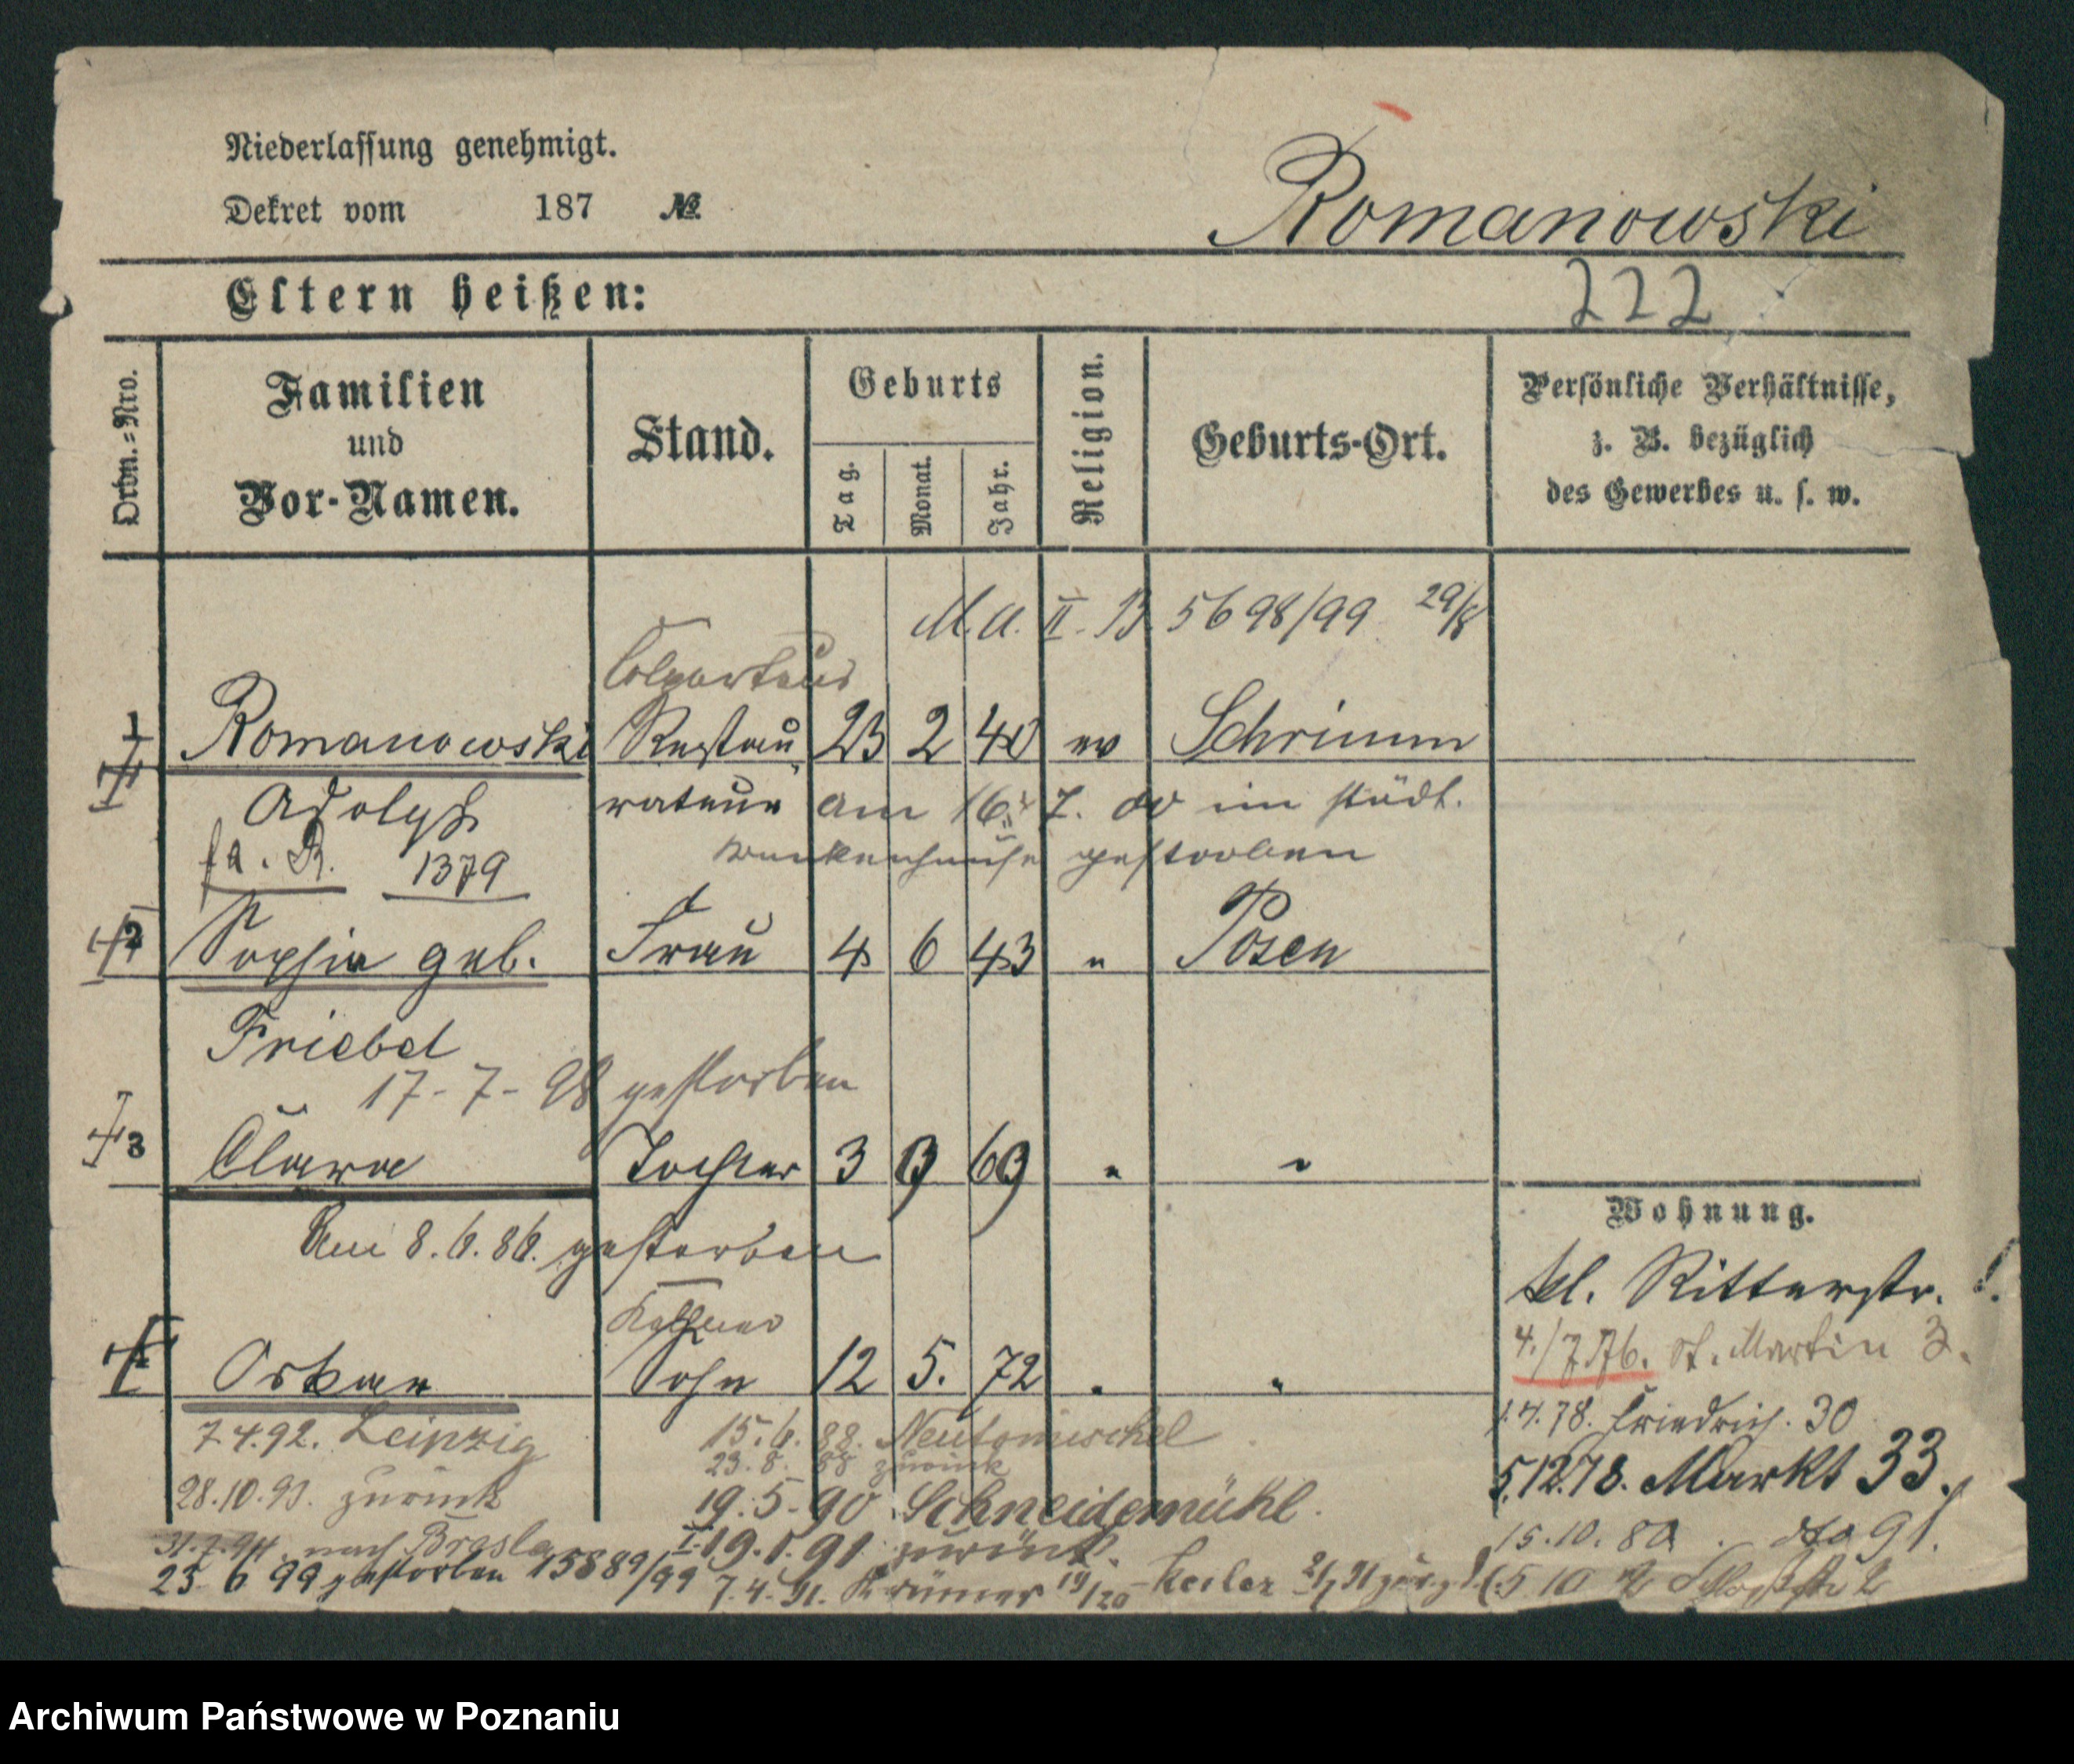 Niederlassung genehmigt.
Dekret vom 187 №.
Romanowski
Eltern heißen:
222
Ordn.-Nro.
Familien
und
Vor-Namen.
Stand.
Geburts
Tag.
Monat.
Jahr.
Religion.
Geburts-Ort.
Persönliche Verhältnisse,
z. B. bezüglich
des Gewerbes u. s. w.
M.A. II. B. 5698/99 29/8
Colporteur
1 Romanowski Restau 23 2 40 ev Schrimm
Adolph rateur am 16. 7. 00 im städt.
fa. R. 1379 Krankenhause gestorben
2 Sophie geb. Frau 4 6 43 " Posen
Friebel
17-7-98 gestorben
3 Clara Tochter 3 9 69 " "
Am 8.6.86. gestorben
Wohnung.
kl. Ritterstr.
4./7 76. St. Martin 3.
Kellner
4 Oskar Sohn 12 5. 72 " "
1.4.78. Friedrich. 30
7.4.92. Leipzig
15.6.88. Neutomischel
23.8.88 zurück
5.12.78. Markt 33.
28.10.93. zurück
19.5.90 Schneidemühl.
15.10.80. dto 91.
31.7.94. nach Breslau
19.1.91 zurück.
25 6 99 gestorben 15889/99
7.4.91. Krämer 19/20 Keiler